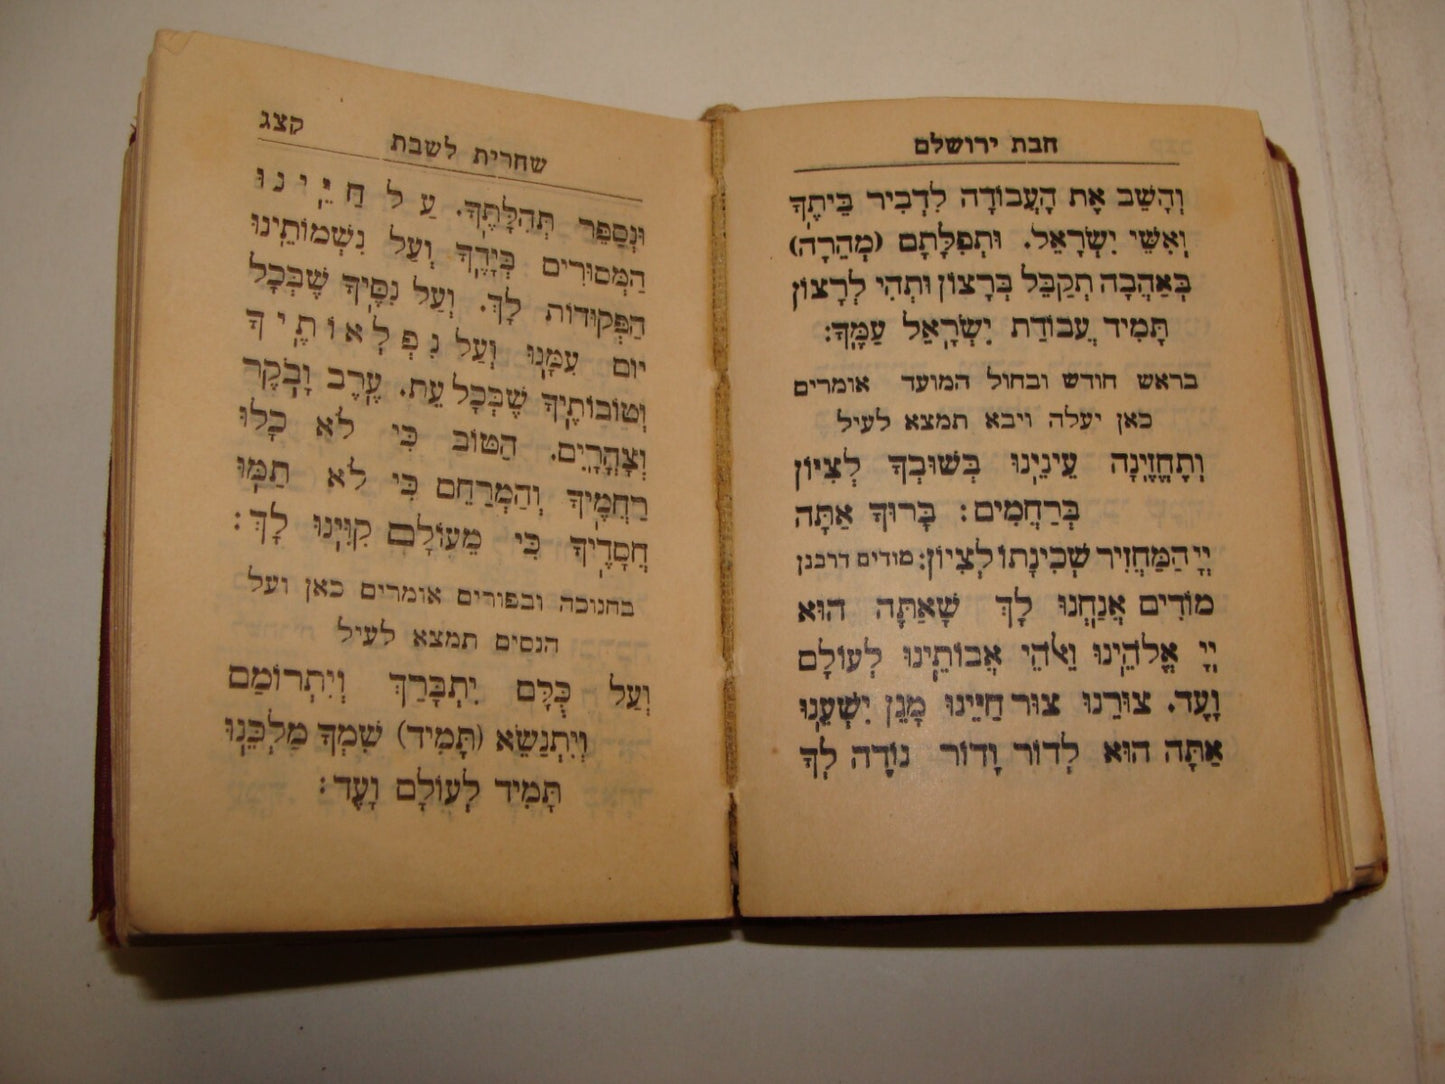 חבת ירושלם
וְהָשֵׁב אֶת הָעֲבוֹדָה לִדְבִיר בֵּיתֶךָ
וְאִשֵּׁי יִשְׂרָאֵל. וּתְפִלָּתָם (מְהֵרָה)
בְּאַהֲבָה תְקַבֵּל בְּרָצוֹן וּתְהִי לְרָצוֹן
תָּמִיד עֲבוֹדַת יִשְׂרָאֵל עַמֶּךָ:
בראש חודש ובחול המועד אומרים
כאן יעלה ויבא תמצא לעיל
וְתֶחֱזֶינָה עֵינֵינוּ בְּשׁוּבְךָ לְצִיּוֹן
בְּרַחֲמִים: בָּרוּךְ אַתָּה
יְיָ הַמַּחֲזִיר שְׁכִינָתוֹ לְצִיּוֹן: מודים דרבנן
מוֹדִים אֲנַחְנוּ לָךְ שָׁאַתָּה הוּא
יְיָ אֱלֹהֵינוּ וֵאלֹהֵי אֲבוֹתֵינוּ לְעוֹלָם
וָעֶד. צוּרֵנוּ צוּר חַיֵּינוּ מָגֵן יִשְׁעֵנוּ
אַתָּה הוּא לְדוֹר וָדוֹר נוֹדֶה לְךָ
שחרית לשבת קצג
וּנְסַפֵּר תְּהִלָּתֶךָ. עַל חַיֵּינוּ
הַמְּסוּרִים בְּיָדֶךָ וְעַל נִשְׁמוֹתֵינוּ
הַפְּקוּדוֹת לָךְ. וְעַל נִסֶּיךָ שֶׁבְּכָל
יוֹם עִמָּנוּ וְעַל נִפְלְאוֹתֶיךָ
וְטוֹבוֹתֶיךָ שֶׁבְּכָל עֵת. עֶרֶב וָבֹקֶר
וְצָהֳרָיִם. הַטּוֹב כִּי לֹא כָלוּ
רַחֲמֶיךָ וְהַמְרַחֵם כִּי לֹא תַמּוּ
חֲסָדֶיךָ כִּי מֵעוֹלָם קִוִּינוּ לָךְ:
בחנוכה ובפורים אומרים כאן ועל
הנסים תמצא לעיל
וְעַל כֻּלָּם יִתְבָּרַךְ וְיִתְרוֹמַם
וְיִתְנַשֵּׂא (תָּמִיד) שִׁמְךָ מַלְכֵּנוּ
תָּמִיד לְעוֹלָם וָעֶד: